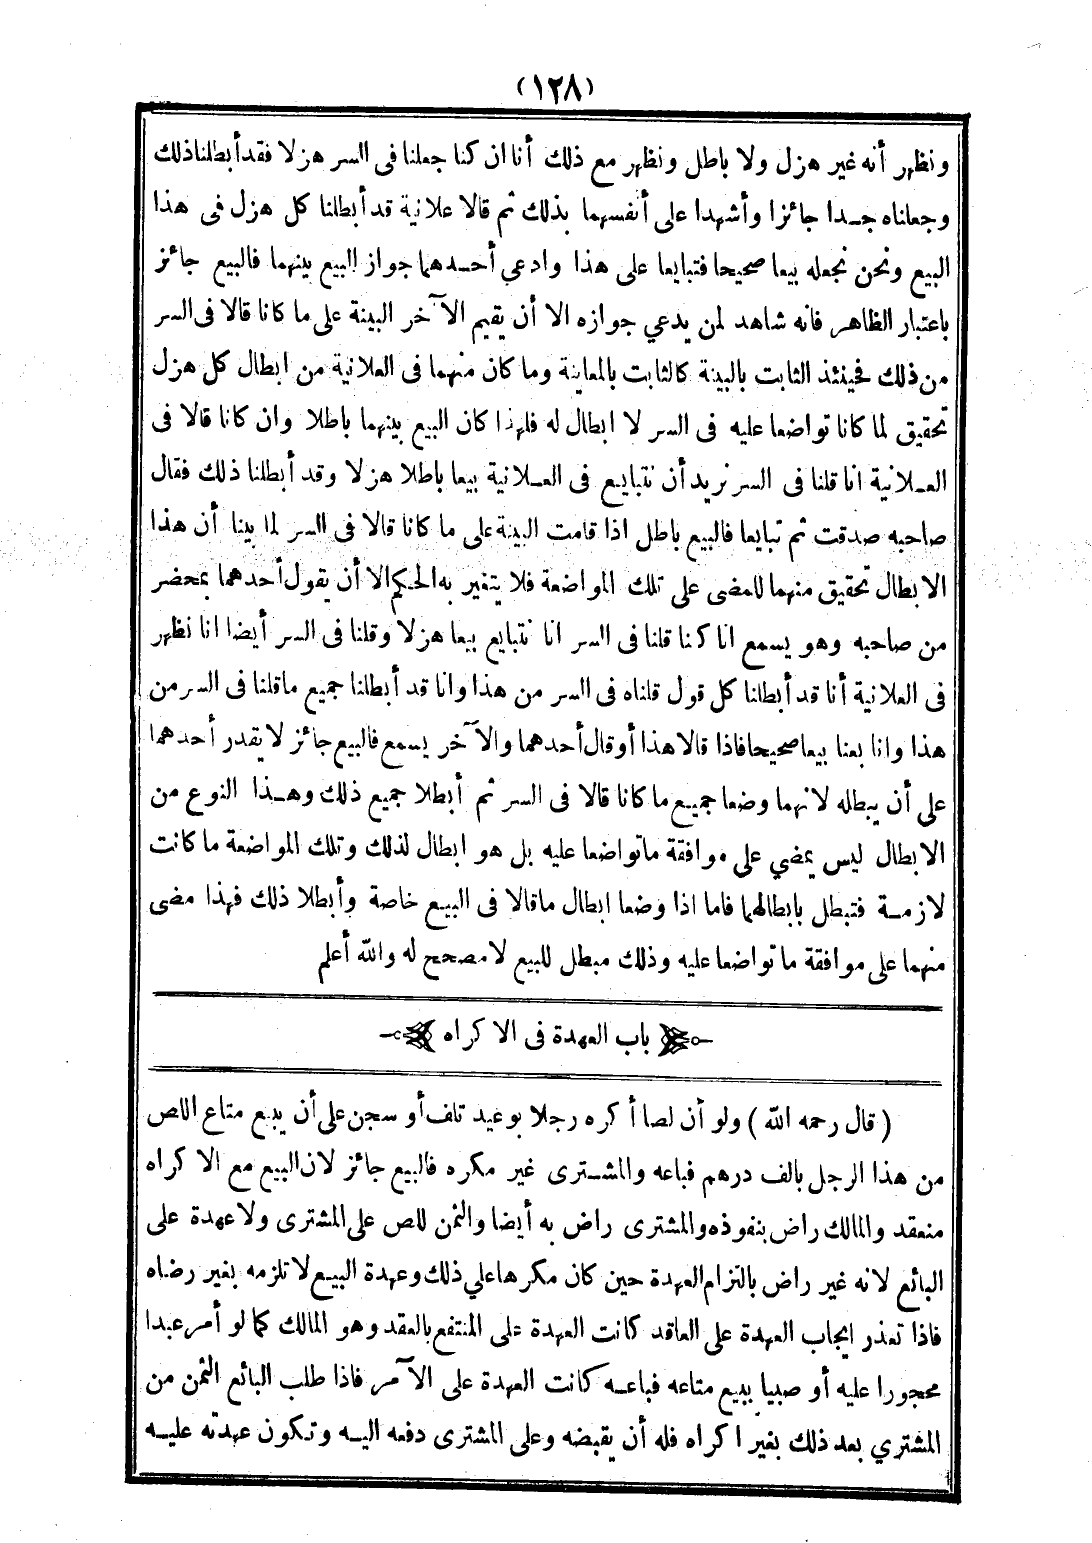 (١٢٨)
ونظهر أنه غير هزل ولا باطل ونظهر مع ذلك أنا ان كنا جعلنا فى السر هزلا فقد أبطلنا ذلك
وجعلناه جدا جائزا وأشهدا على أنفسهما بذلك ثم قالا علانية قد أبطلنا كل هزل فى هذا
البيع ونحن نجعله بيعا صحيحا فتبايعا على هذا وادعى أحدهما جواز البيع بينهما فالبيع جائز
باعتبار الظاهر فانه شاهد لمن يدعي جوازه الا أن يقيم الآخر البينة على ما كانا قالا فى السر
من ذلك فحينئذ الثابت بالبينة كالثابت بالمعاينة وما كان منهما فى العلانية من ابطال كل هزل
تحقيق لما كانا تواضعا عليه فى السر لا ابطال له فلهذا كان البيع بينهما باطلا وان كانا قالا فى
العلانية انا قلنا فى السر نريد أن نتبايع فى العلانية بيعا باطلا هزلا وقد أبطلنا ذلك فقال
صاحبه صدقت ثم تبايعا فالبيع باطل اذا قامت البينة على ما كانا قالا فى السر لما بينا أن هذا
الابطال تحقيق منهما للمضى على تلك المواضعة فلا يتغير به الحكم الا أن يقول أحدهما بمحضر
من صاحبه وهو يسمع انا كنا قلنا فى السر انا نتبايع بيعا هزلا وقلنا فى السر أيضا انا نظهر
فى العلانية أنا قد أبطلنا كل قول قلناه فى السر من هذا وانا قد أبطلنا جميع ما قلنا فى السر من
هذا وانا بعنا بيعا صحيحا فاذا قالا هذا أو قال أحدهما والآخر يسمع فالبيع جائز لا يقدر أحدهما
على أن يبطله لانهما وضعا جميع ما كانا قالا فى السر ثم أبطلا جميع ذلك وهذا النوع من
الابطال ليس يمضي على موافقة ما تواضعا عليه بل هو ابطال لذلك وتلك المواضعة ما كانت
لازمة فتبطل بابطالهما فاما اذا وضعا ابطال ما قالا فى البيع خاصة وأبطلا ذلك فهذا مضى
منهما على موافقة ما تواضعا عليه وذلك مبطل للبيع لا مصحح له والله أعلم
باب العهدة فى الاكراه
( قال رحمه الله ) ولو أن لصا أكره رجلا بوعيد تلف أو سجن على أن يبيع متاع اللص
من هذا الرجل بالف درهم فباعه والمشترى غير مكره فالبيع جائز لان البيع مع الاكراه
منعقد والمالك راض بنفوذه والمشترى راض به أيضا والثمن للص على المشترى ولا عهدة على
البائع لانه غير راض بالتزام العهدة حين كان مكرها على ذلك وعهدة البيع لا تلزمه بغير رضاه
فاذا تعذر ايجاب العهدة على العاقد كانت العهدة على المنتفع بالعقد وهو المالك كما لو أمر عبدا
محجورا عليه أو صبيا ببيع متاعه فباعه كانت العهدة على الآمر فاذا طلب البائع الثمن من
المشتري بعد ذلك بغير اكراه فله أن يقبضه وعلى المشترى دفعه اليه وتكون عهدته عليه